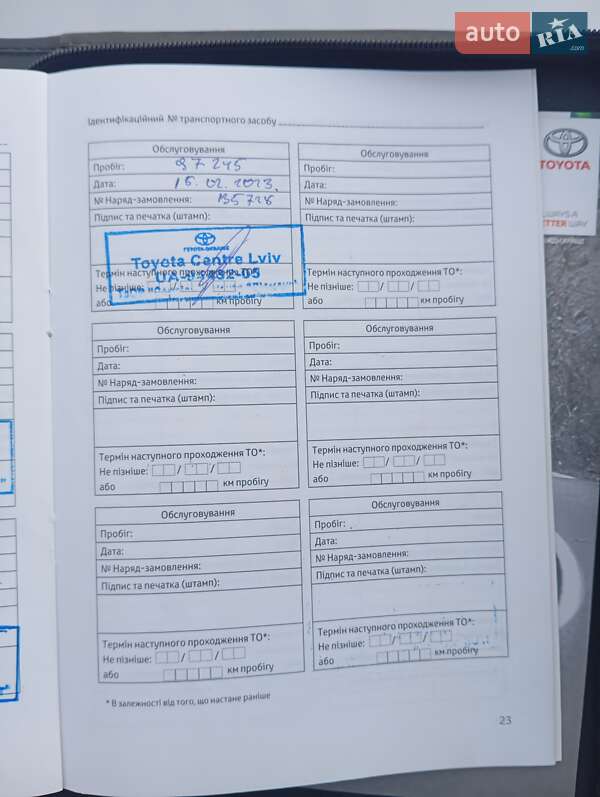 auto RIA.com
TOYOTA
ALWAYS A
BETTER WAY
Ідентифікаційний № транспортного засобу
Обслуговування
Пробіг: 97 245
Дата: 16.02.2023.
№ Наряд-замовлення:
Підпис та печатка (штамп):
TOYOTA-UKRAINE
Toyota Centre Lviv
Термін наступного проходження ТО*:
Не пізніше: / /
або км пробігу
Обслуговування
Пробіг:
Дата:
№ Наряд-замовлення:
Підпис та печатка (штамп):
Термін наступного проходження ТО*:
Не пізніше: / /
або км пробігу
Обслуговування
Пробіг:
Дата:
№ Наряд-замовлення:
Підпис та печатка (штамп):
Термін наступного проходження ТО*:
Не пізніше: / /
або км пробігу
Обслуговування
Пробіг:
Дата:
№ Наряд-замовлення:
Підпис та печатка (штамп):
Термін наступного проходження ТО*:
Не пізніше: / /
або км пробігу
Обслуговування
Пробіг:
Дата:
№ Наряд-замовлення:
Підпис та печатка (штамп):
Термін наступного проходження ТО*:
Не пізніше: / /
або км пробігу
Обслуговування
Пробіг:
Дата:
№ Наряд-замовлення:
Підпис та печатка (штамп):
Термін наступного проходження ТО*:
Не пізніше: / /
або км пробігу
* В залежності від того, що настане раніше
23